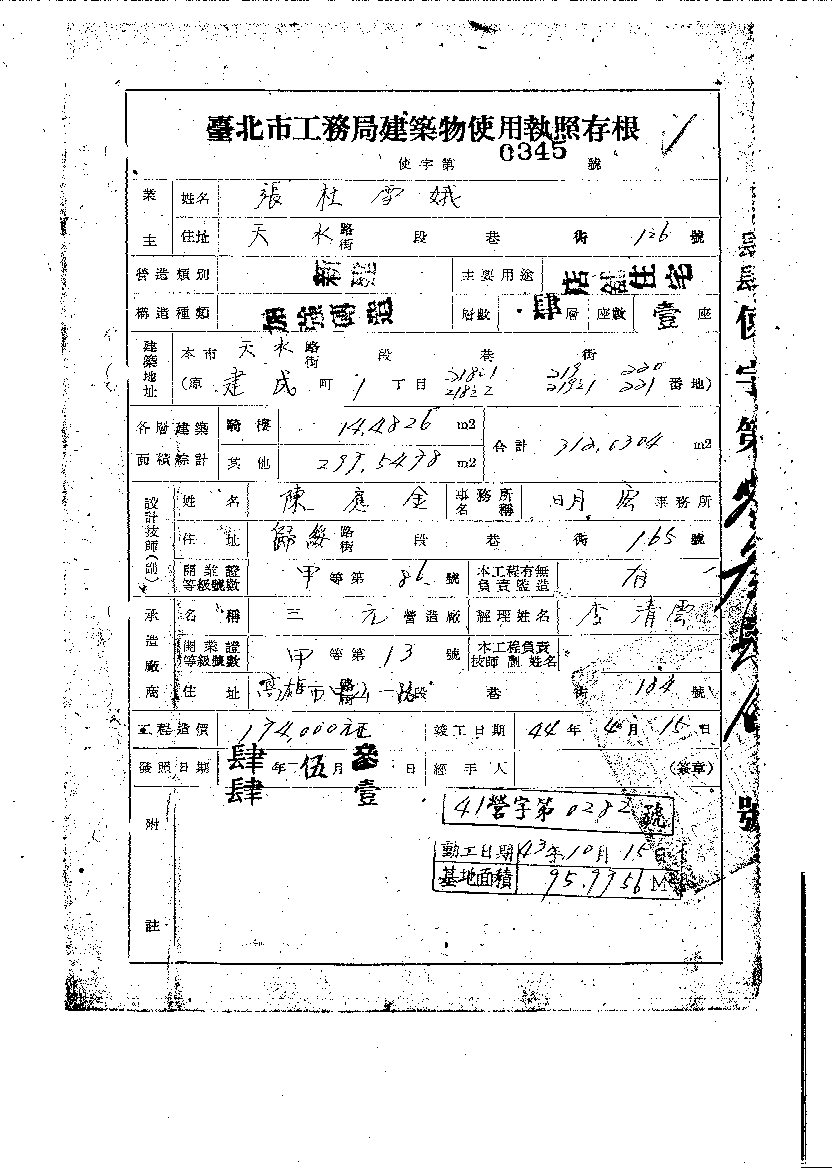 臺北市工務局建築物使用執照存根
使字第 0345 號
業主 姓名 張杜雪娥
住址 天水路街 段 巷 街 126 號
營造類別 新建 主要用途 店舖住宅
構造種類 加強磚造 層數 肆層 座數 壹座
建築地址 本市 天水路街 段 巷 街
(原 建成町 1 丁目 21821 21822 219 21921 220 221 番地)
各層建築面積綜計 騎樓 14.4826 m2 合計 312.0304 m2
其他 299.5478 m2
設計技師(副) 姓名 陳應金 事務所名稱 事務所
住址 歸綏路街 段 巷 街 165 號
開業證等級號數 甲等第 86 號 本工程有無負責監造 有
承造廠商 名稱 三元營造廠 經理姓名 李清雲
開業證等級號數 甲等第 13 號 本工程負責技師副姓名
住址 高雄市中山一路 段 巷 街 184 號
工程造價 174,000元正 竣工日期 44年 4月 15日
發照日期 肆肆年伍月 日 經手人 (簽章)
41營字第0282號
動工日期 43年10月15
基地面積 95.9956 M
附註
使字第
號